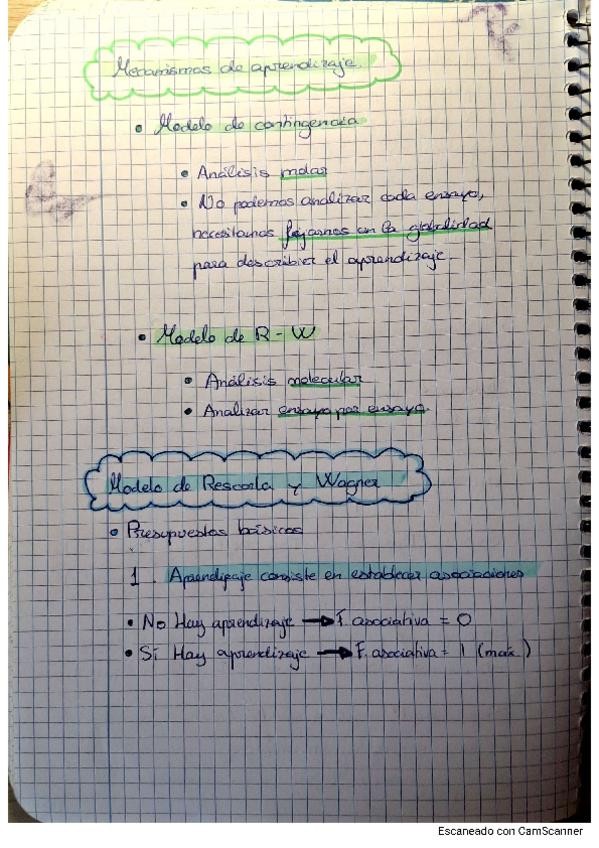 Mecanismos de aprendizaje.
• Modelo de contingencia
• Análisis molar
• No podemos analizar cada ensayo,
necesitamos fijarnos en la globalidad
para describir el aprendizaje.
• Modelo de R-W
• Análisis molecular
• Analizar ensayo por ensayo.
Modelo de Rescorla y Wagner
• Presupuestos básicos
1. Aprendizaje consiste en establecer asociaciones
• No Hay aprendizaje → F. asociativa = 0
• Sí Hay aprendizaje → F. asociativa = 1 (max)
Escaneado con CamScanner